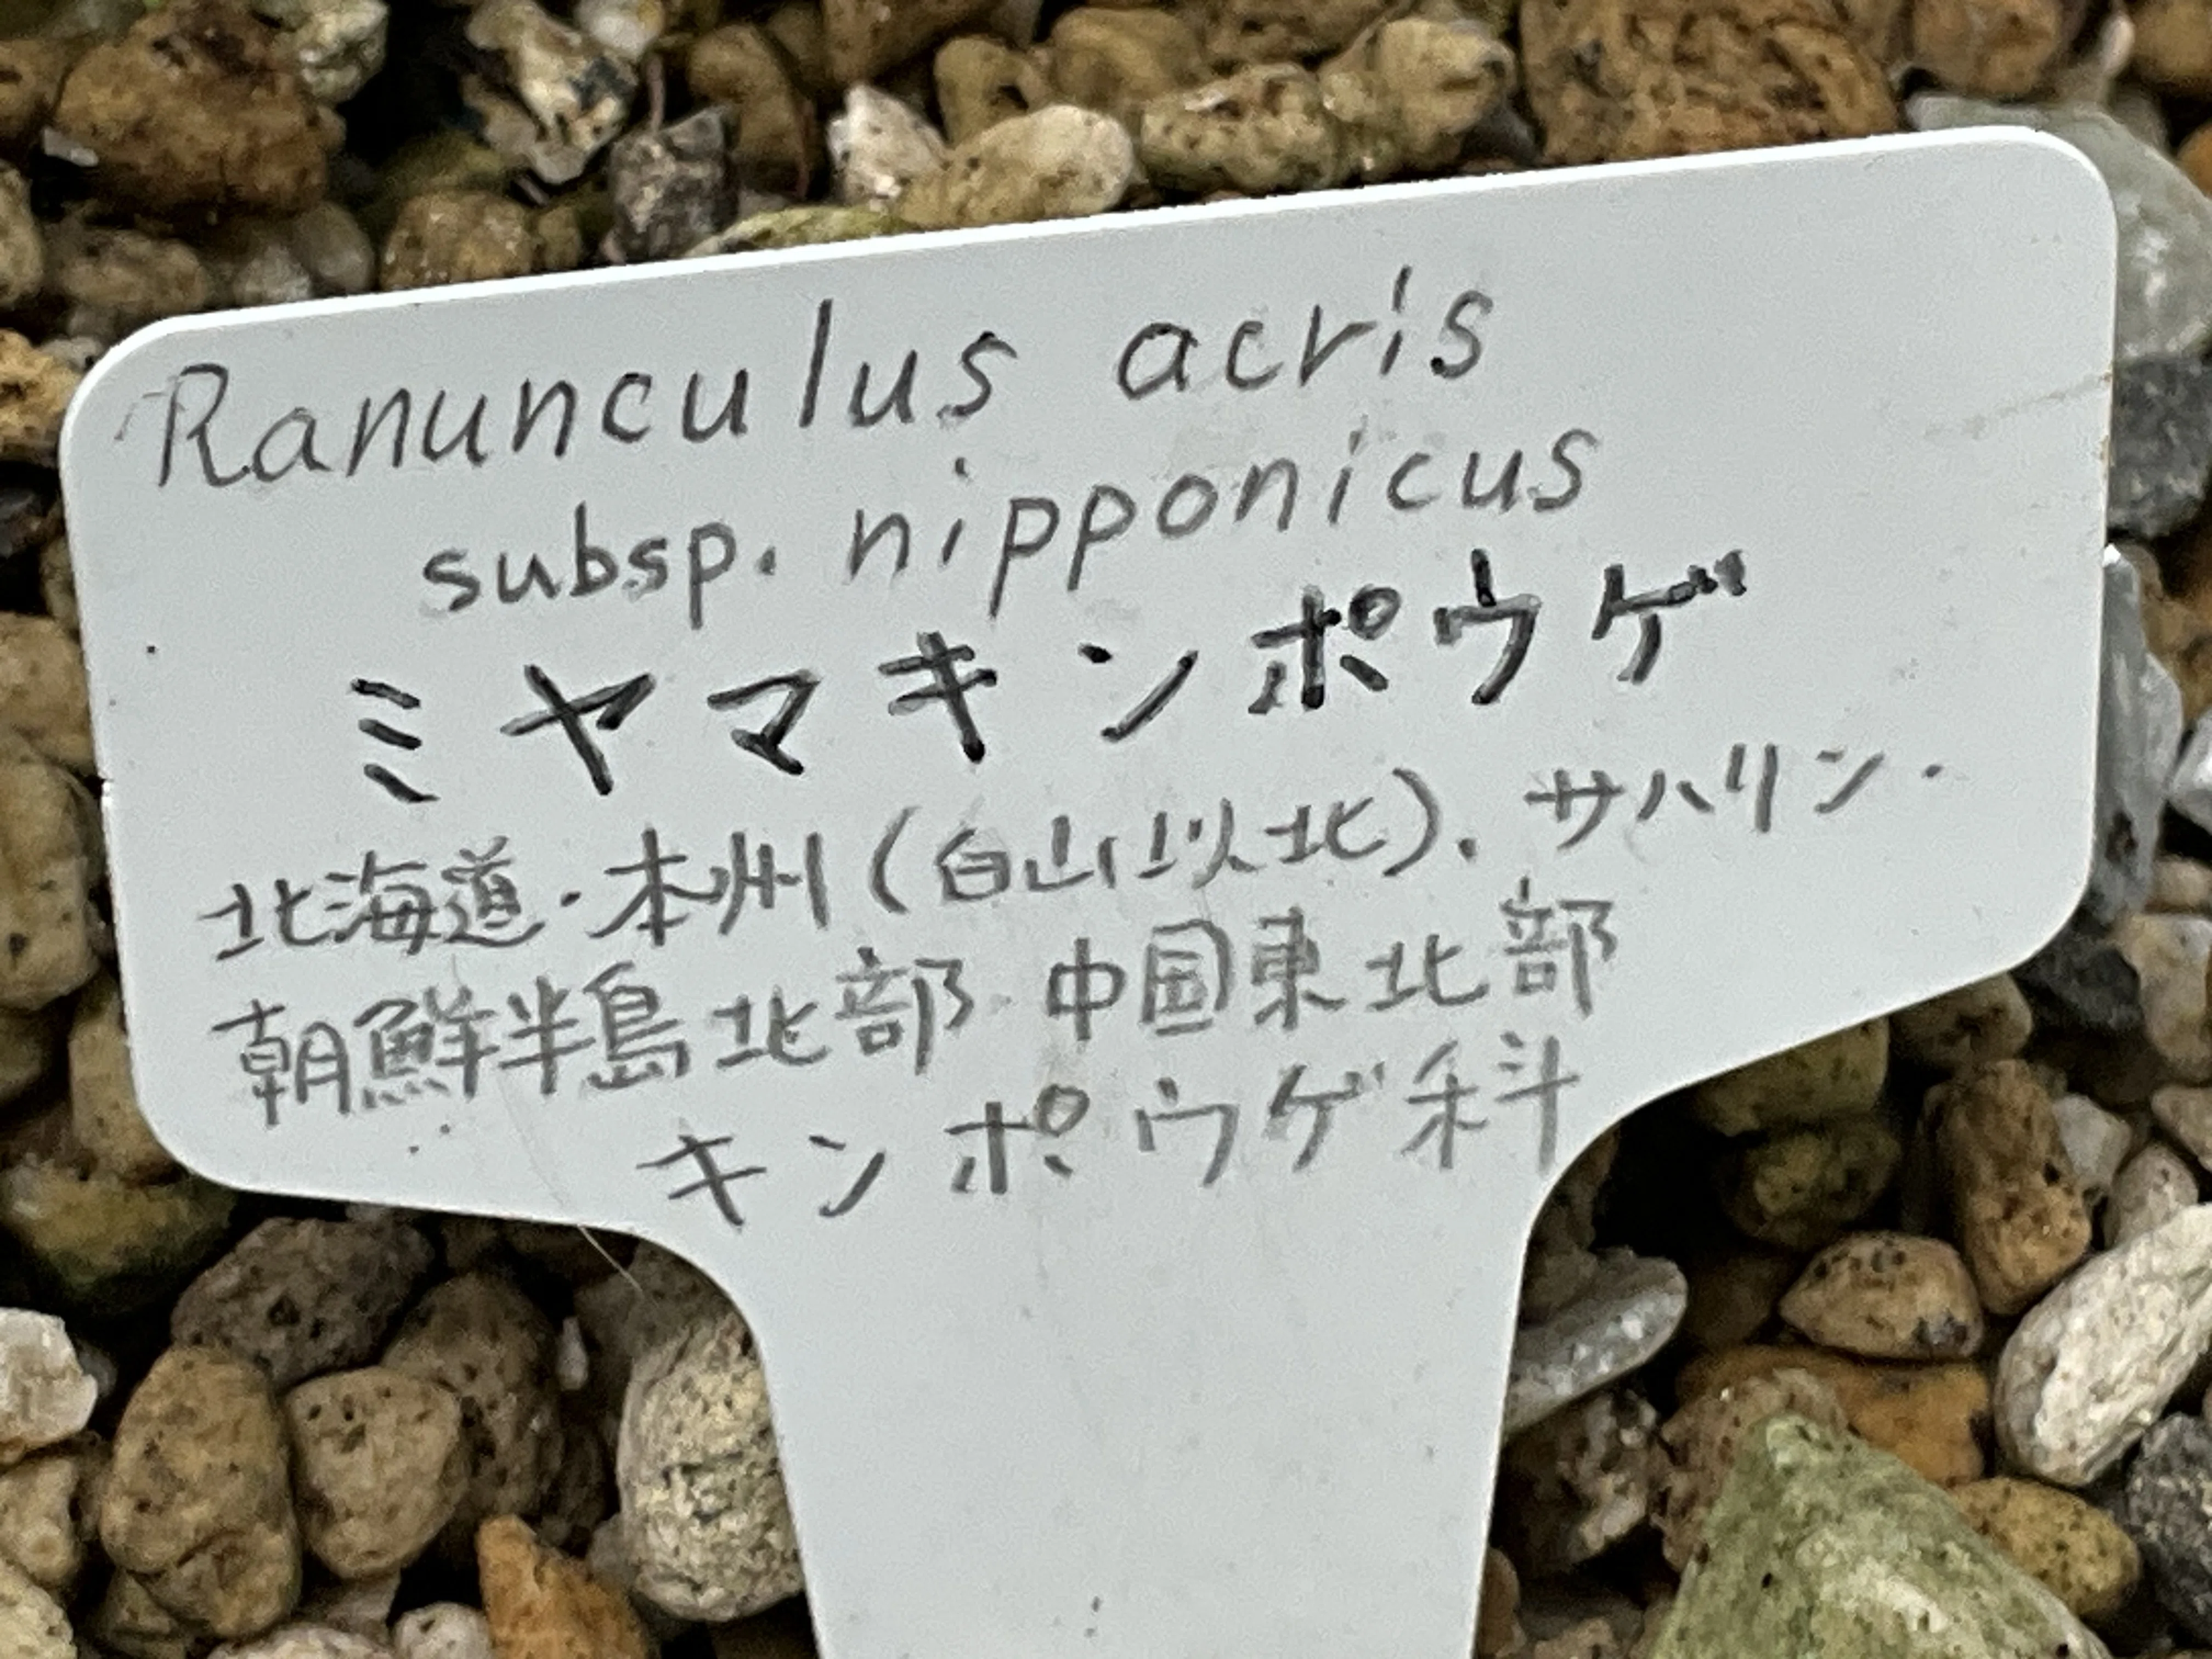 Ranunculus acris
subsp. nipponicus
ミヤマキンポウゲ
北海道・本州（白山以北）、サハリン・
朝鮮半島北部・中国東北部
キンポウゲ科